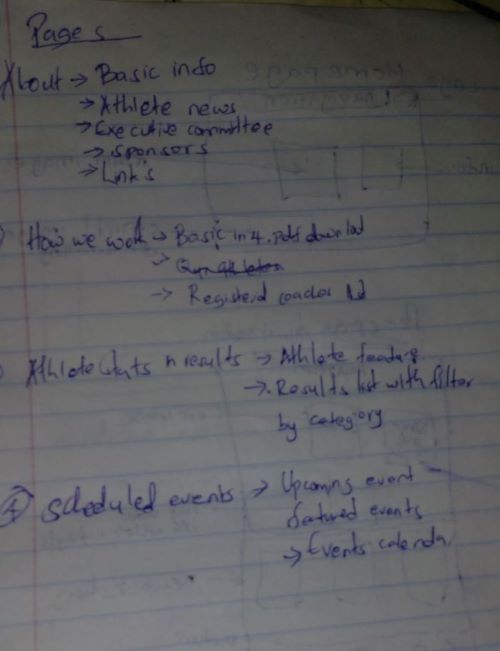 Pages
About → Basic info
→ Athlete news
→ Executive committee
→ Sponsors
→ Link's
How we work → Basic in 4. Pdf downlod
→ Registerd coaches
Athlete n results → Athlete
→ Results list with filter
by category
4) Scheduled events → Upcoming event
featured events
→ Events calenda.